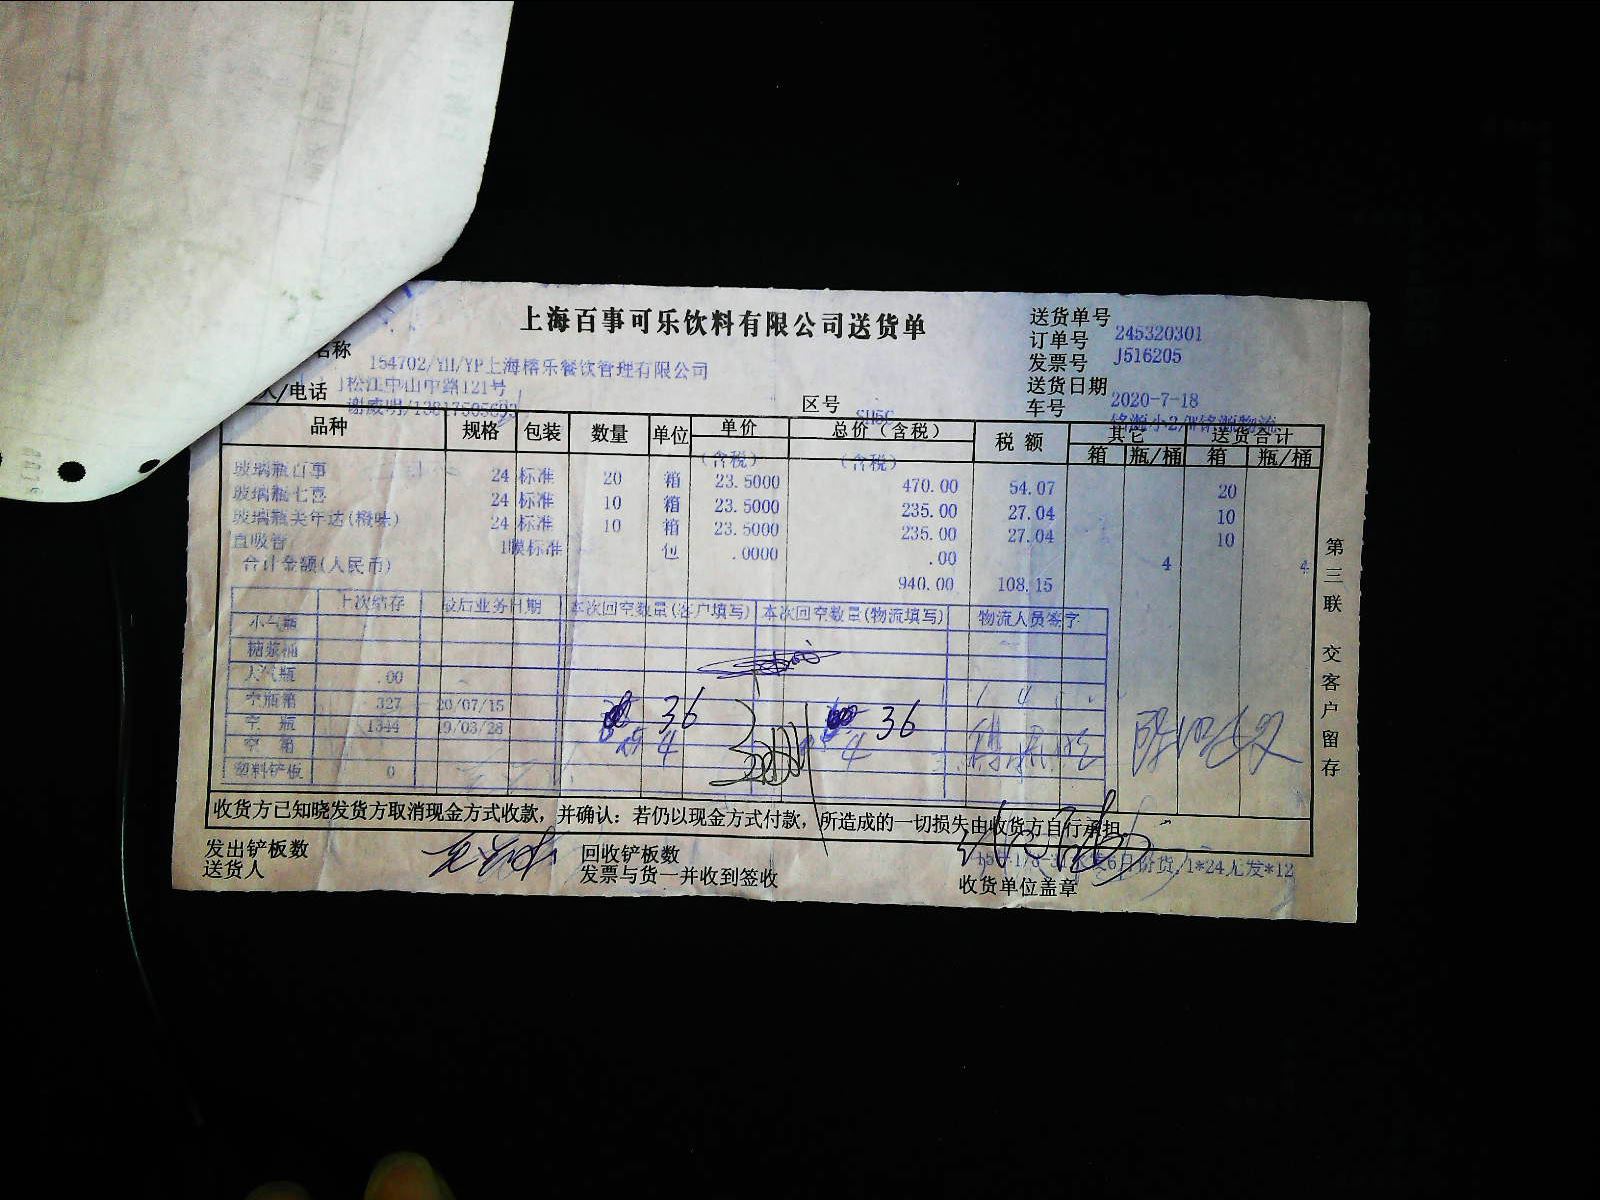 上海百事可乐饮料有限公司送货单
送货单号
订单号 245320301
发票号 J516205
送货日期
2020-7-18
车号
名称
154702/YH/YP上海榕乐餐饮管理有限公司
松江中山中路121号
人/电话
区号
SH5C
品种 规格 包装 数量 单位 单价 总价（含税） 税 额 其它 送货合计
(含税) (含税) 箱 瓶/桶 箱 瓶/桶
玻璃瓶百事 24 标准 20 箱 23.5000 470.00 54.07 20
玻璃瓶七喜 24 标准 10 箱 23.5000 235.00 27.04 10
玻璃瓶美年达(橙味) 24 标准 10 箱 23.5000 235.00 27.04 10
直吸管 1 标准 包 .0000 .00 4 4
合计金额(人民币) 940.00 108.15
上次结存 最后业务日期 本次回空数量(客户填写) 本次回空数量(物流填写) 物流人员签字
糖浆桶
大气瓶 .00
空瓶箱 327 20/07/15 36 36
空 瓶 1344 9/03/28 4 4
空 箱
塑料铲板 0
收货方已知晓发货方取消现金方式收款，并确认：若仍以现金方式付款，所造成的一切损失由收货方自行承担
发出铲板数 回收铲板数
送货人 发票与货一并收到签收 收货单位盖章
第三联 交客户留存